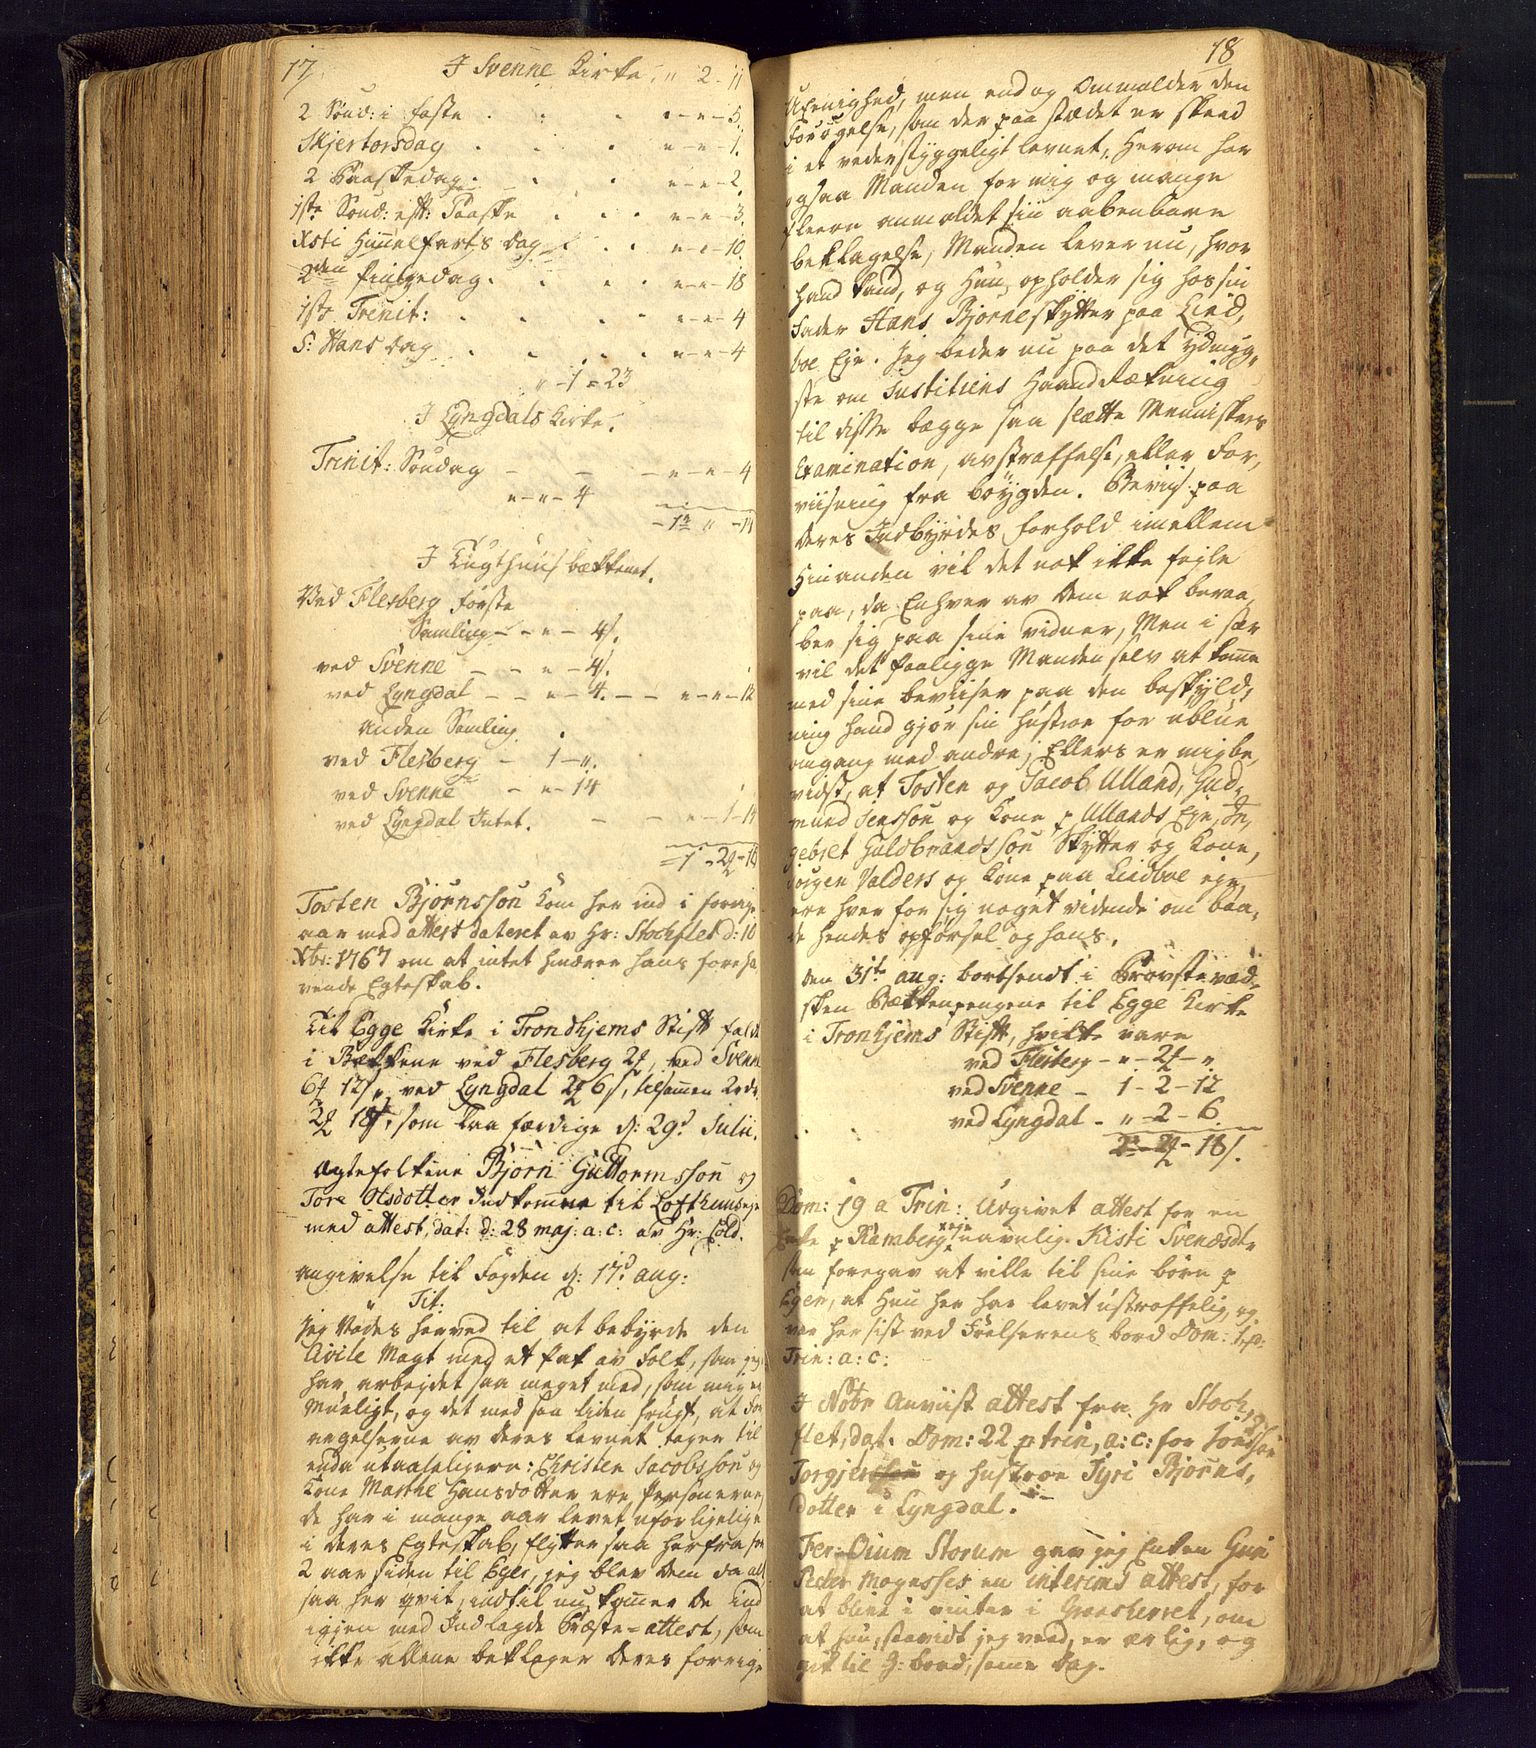 17.
I Svenne Kirke. " 2 - 11
2 Sønd: i faste . . . . " - " - 5.
Skjertorsdag . . . " - " - 1.
2 Paaskedag . . . " - " - 2.
1ste Sønd: eft: Paaske . . . " - " - 3.
Xsti Himelfarts Dag . . . " - " - 10.
2den Pintzedag . . . . " - " - 18
1ste Trinit: . . . . " - " - 4
S: Hans Dag . . . . " - " - 4
" - 1 - 23
I Lyngdals Kirke.
Trinit: Søndag - - - " - " - 4
" - " - 4
I Tugthuus bækkenet.
Ved Flesberg første
Samling - - " - 4 s.
ved Svenne - - " - 4 s.
ved Lyngdal - - " - 4. - - " - " - 12
Anden Samling
ved Flesberg - 1 - ".
ved Svenne - " - 14
ved Lyngdal Intet. - - " - 1 - 14
Tosten Bjørnssøn kom her ind i forrige
aar med attest dateret av Hr: Stockflet d: 10
Xbr: 1767 om at intet hindrer hans foreha
vende Egteskab.
Til Egge Kirke i Trondhjems Stift faldt
i Bækkene ved Flesberg 2 , ved Svenne
6 12 s, ved Lyngdal 2 6 s, tilsamen 2 rdr.
2 18 s. som laa færdige d: 29de Julii.
Ægtefolkene Bjørn Guttormssøn og
Tore Olsdotter Indkomne til Lofthuus eje
med attest, dat: d: 28 maj: a: c: av Hr: Cold.
Angivelse til Fogden d: 17d aug:
Tit:
Jeg Nødes herved til at bebyrde den
Civile Magt med et pak av Folk, som jeg
har arbejdet saa meget med, som mig er
Mueligt, og det med saa liden frugt, at For
argelserne av deres levnet tager til
enda utaaleligere: Christen Jacobssøn og
Kone Marthe Hansdotter ere Personerne,
de har i mange aar levet uforligelige
i deres Egteskab, flytter saa herfra for
2 aar siden til Eger, jeg blev dem da alt
saa her qvit, indtil nu kommer de ind
igjen med Indlagde Præste-attest, som
ikke allene beklager deres forrige
18
Uenighed, men end og Ommelder den
Forøgelse, som der paa stædet er skeed
i et vederstyggeligt levnet; Herom har
ogsaa Manden for mig og mange
fleere anmeldet siin aabenbare
beklagelse, Manden lever nu, hvor
hand kand, og Hun opholder sig hos sin
Fader Hans Bjørneskytter paa Lind,
boe Eje. Jeg beder nu paa det ydmyg,
ste om Justitiens Haand Rækning
til disse begge saa slætte Menniskers
Examination, avstraffelse, eller For,
viisning fra bøygden. Beviis paa
deres Indbyrdes forhold imellem
Hinanden vil det nok ikke fejle
paa, da Enhver av dem nok beraa,
ber sig paa sine vidner, Men i sær
vil det paaligge Manden selv at komme
med sine beviiser paa den beskyld,
ning hand gjør sin hustroe for ublue
omgang med andre; Ellers er mig be,
vidst, at Tosten og Jacob Ulland, Gud,
mund Jenssøn og Kone p Ullands Eje, In,
gebret Guldbrandssøn Skytter og Kone,
Jørgen Valders og Kone paa Lindboe eje,
ere hver for sig noget vidende om baa,
de hendes opførsel og hans.
Den 31te aug: bortsendt i Provstevæd,
sken Bækkenpengene til Egge Kirke
i Tronhjems Stift, hvilke vare
ved Flesberg - " - 2 - "
ved Svenne - 1 - 2 - 12
ved Lyngdal - " - 2 - 6
2 - 2 - 18 s.
Dom: 19 a Trin: Udgivet attest for en
Enke p Ramberg eje navnlig Kisti Svendsdtr
som foregav at ville til sine børn p
Eger, at Hun her har levet ustraffelig, og
var her sist ved Frelserens bord Dom:
Trin: a: c:
I Nobr Anviist attest fra Hr Stock,
flet, dat. Dom: 22 p trin, a: c: for
Torgjerssøn og hustroe Tyri Bjørns,
dotter i Lyngdal.
Fer: Omnium Storum gav jeg Enken Guri
Peder Mogenses en interims attest, for
at blive i vinter i Gransherret, om
at hun, saavidt jeg veed, er ærlig, og
gik til G: bord, samme Dag.